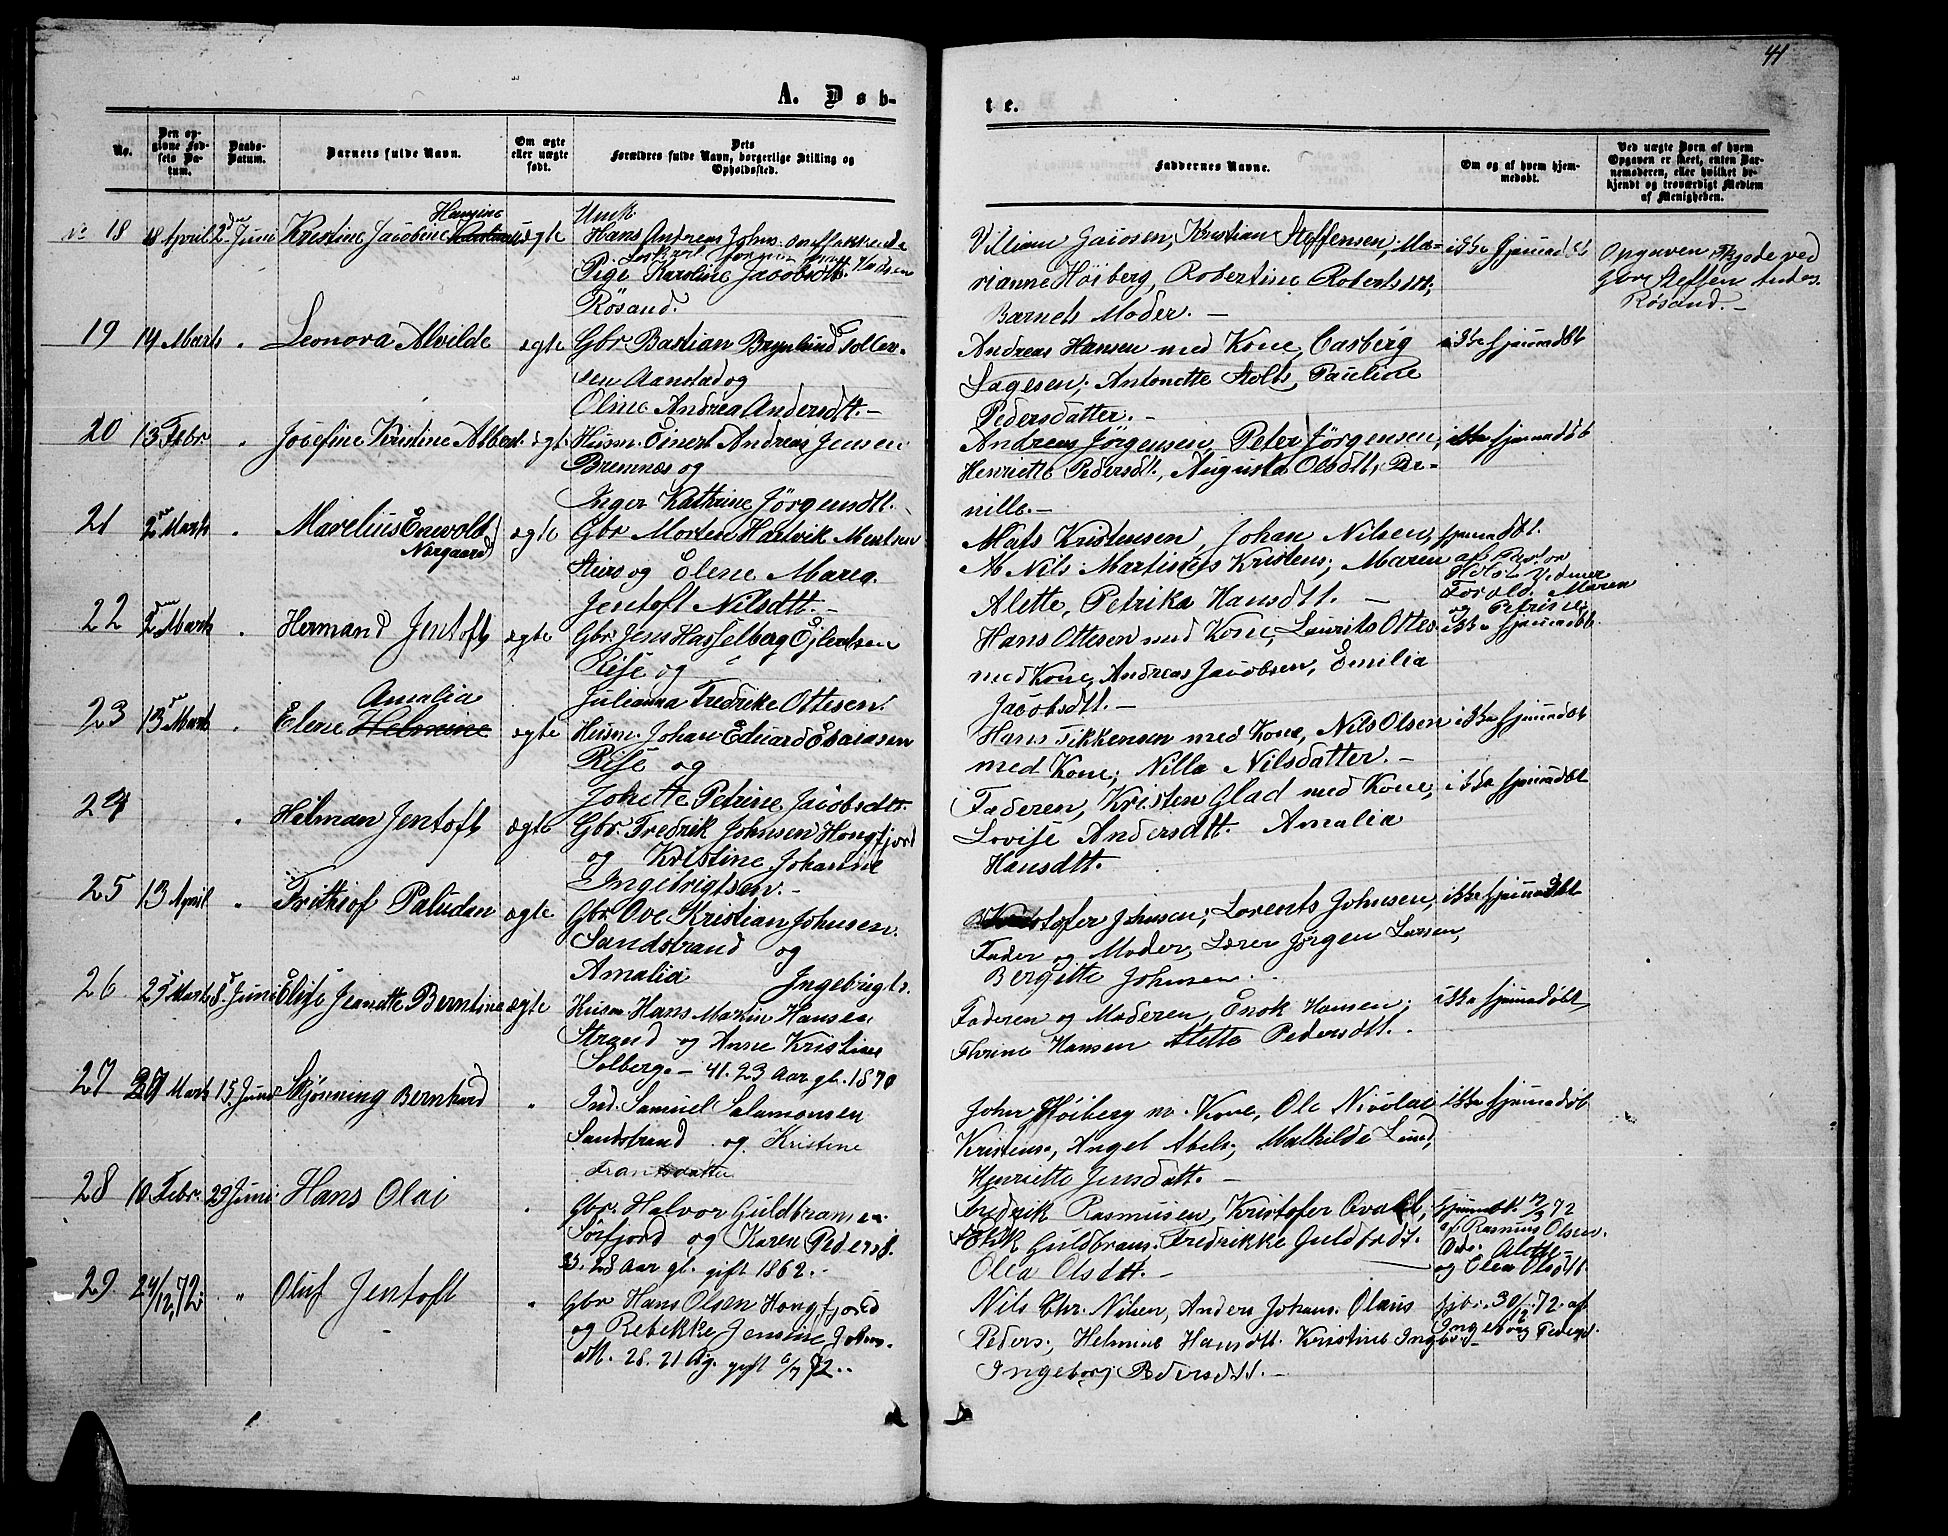 41
A. Døb-
te.
No.
Den op-
givne Fød-
sels Da-
tum.
Daabs-
Datum.
Barnets fulde Navn.
Om ægte
eller uægte
født.
Dets
Forældres fulde Navn, borgerlige Stilling og
Opholdssted.
Faddernes Navne.
Om og af hvem hjem-
medøbt.
Ved uægte Børn af hvem
Opgaven er skeet, enten Bar-
nemoderen, eller hvilket be-
kjendt og troværdigt Medlem
af Menigheden.
18 18 April 2den Juni Kristine Jacobine Hansine uægte
Unck
Hans Andreas Johns.
Pige Karoline Jacobsdtt.
Røsand.
Villian Jacobsen, Kristian Steffensen, Ma-
rianne Høiberg, Robertine Robertsdtt,
Barnets Moder. -
ikke hjemmedøbt
Opgaven skjede ved
Gbr Steffen Anders.
Røsand. -
19 14 Marts " Leonora Alvilde ægte
Gbr Bastian Brynlund Toller-
sen Aanstad og
Oline Andrea Andersdtt. -
Andreas Hansen med Kone, Casberg
Lagesen, Antonette Stolts, Pauline
Pedersdatter. -
ikke hjemmdøbt
20 13 Febr " Josefine Kristine Albert. ægt.
Husm. Einert Andreas Jensen
Bremnæs og
Inger Kathrine Jørgensdtt.
Andreas Jørgensen, Peter Jørgensen,
Henriette Pedersdt, Augusta Olsdtt, Per-
nille. -
ikke hjemmdøb
21 2den Marts " Marelius Enevold
Norgaard ægte
Gbr Morten Hartvik Mentsen
Steiro og Elene Marea
Jentoft Nilsdtt. -
Mats Kristensen, Johan Nilsen,
Nils Martinus Kristens; Maren
Alette, Petrika Hansdtt. -
hjemmdt.
22 2den Marts " Hermand Jentoft ægte
Gbr Jens Hasselberg Ejlertsen
Rise og
Julianna Fredrike Ottesen.
Hans Ottesen med Kone, Laurits Ottes.
med Kone, Andreas Jacobsen, Emilia
Jacobsdtt. -
ikke hjemmdøbt.
23 13de Marts " Elene Amalia Helmine ægte
Husm. Johan Eduard Esaiasen
Rise og
Johette Petrine Jacobsdtt.
Hans Fikkensen med Kone, Nils Olsen
med Kone; Nilla Nilsdatter. -
ikke hjemmdøbt
24 " Hilman Jentoft ægte
Gbr. Fredrik Johnsen Hongfjord
og Kristine Johanne
Ingebrigtsen. -
Faderen, Kristen Glad med Kone,
Lovise Andersdtt. Amalia
Hansdtt.
ikke hjemmdøbt
25 13 April " Frithiof Paludan ægte
Gbr Ove Kristian Johnsen
Sandstrand og
Amalia Ingebrigts.
Kristofer Johnsen, Lorents Johnsen,
Fader og Moder, Lærer Jørgen Larsen,
Bergitte Johnsen.
ikke hjemmdøbt
26 25 Marts 8de Juni Elise Jeanette Berntine ægte
Husm Hans Martin Hansen
Strand og Anne Kristine
Solberg. - 41. 23 Aar gl. 1870
Faderen og Moderen, Enok Hansen,
Thrine Hansen Alette Pedersdtt.
ikke hjemmdøbt
27 27 Marts 15 Juni Skjønning Bernhard "
Ind. Samuel Salamonsen
Sandstrand og Kristine
Frantsdatter
John Høiberg m. Kone, Ole Nicolai
Kristens, Angel Abels; Mathilde Lund,
Henriette Jensdatt. -
ikke hjemmdøbt
28 10 Febr. 29 Juni Hans Olai "
Gbr. Halvor Guldbransen
Sørfjord og Karen Pedersd.
28 Aar gl. gift 1862. -
Fredrik Rasmusen, Kristofer
Guldbrans. Fredrikke Guldbrdt.
Olea Olsdtt. -
hjemmdt.
af Rasmus Olsen
og Olea Olsdtt.
29 24/12,72 " Oluf Jentoft "
Gbr Hans Olsen Hongfjord
og Rebekke Jensine Johns.
dtt. 28. 21 Aig. gift 6/7 72.
Nils Chr. Nilsen, Anders Johans. Olaus
Peders., Helmine Hansdtt. Kristine
Ingeborg Pedersdtt. -
hjbr. 30/12 72 af
Ingeborg Pedersd.